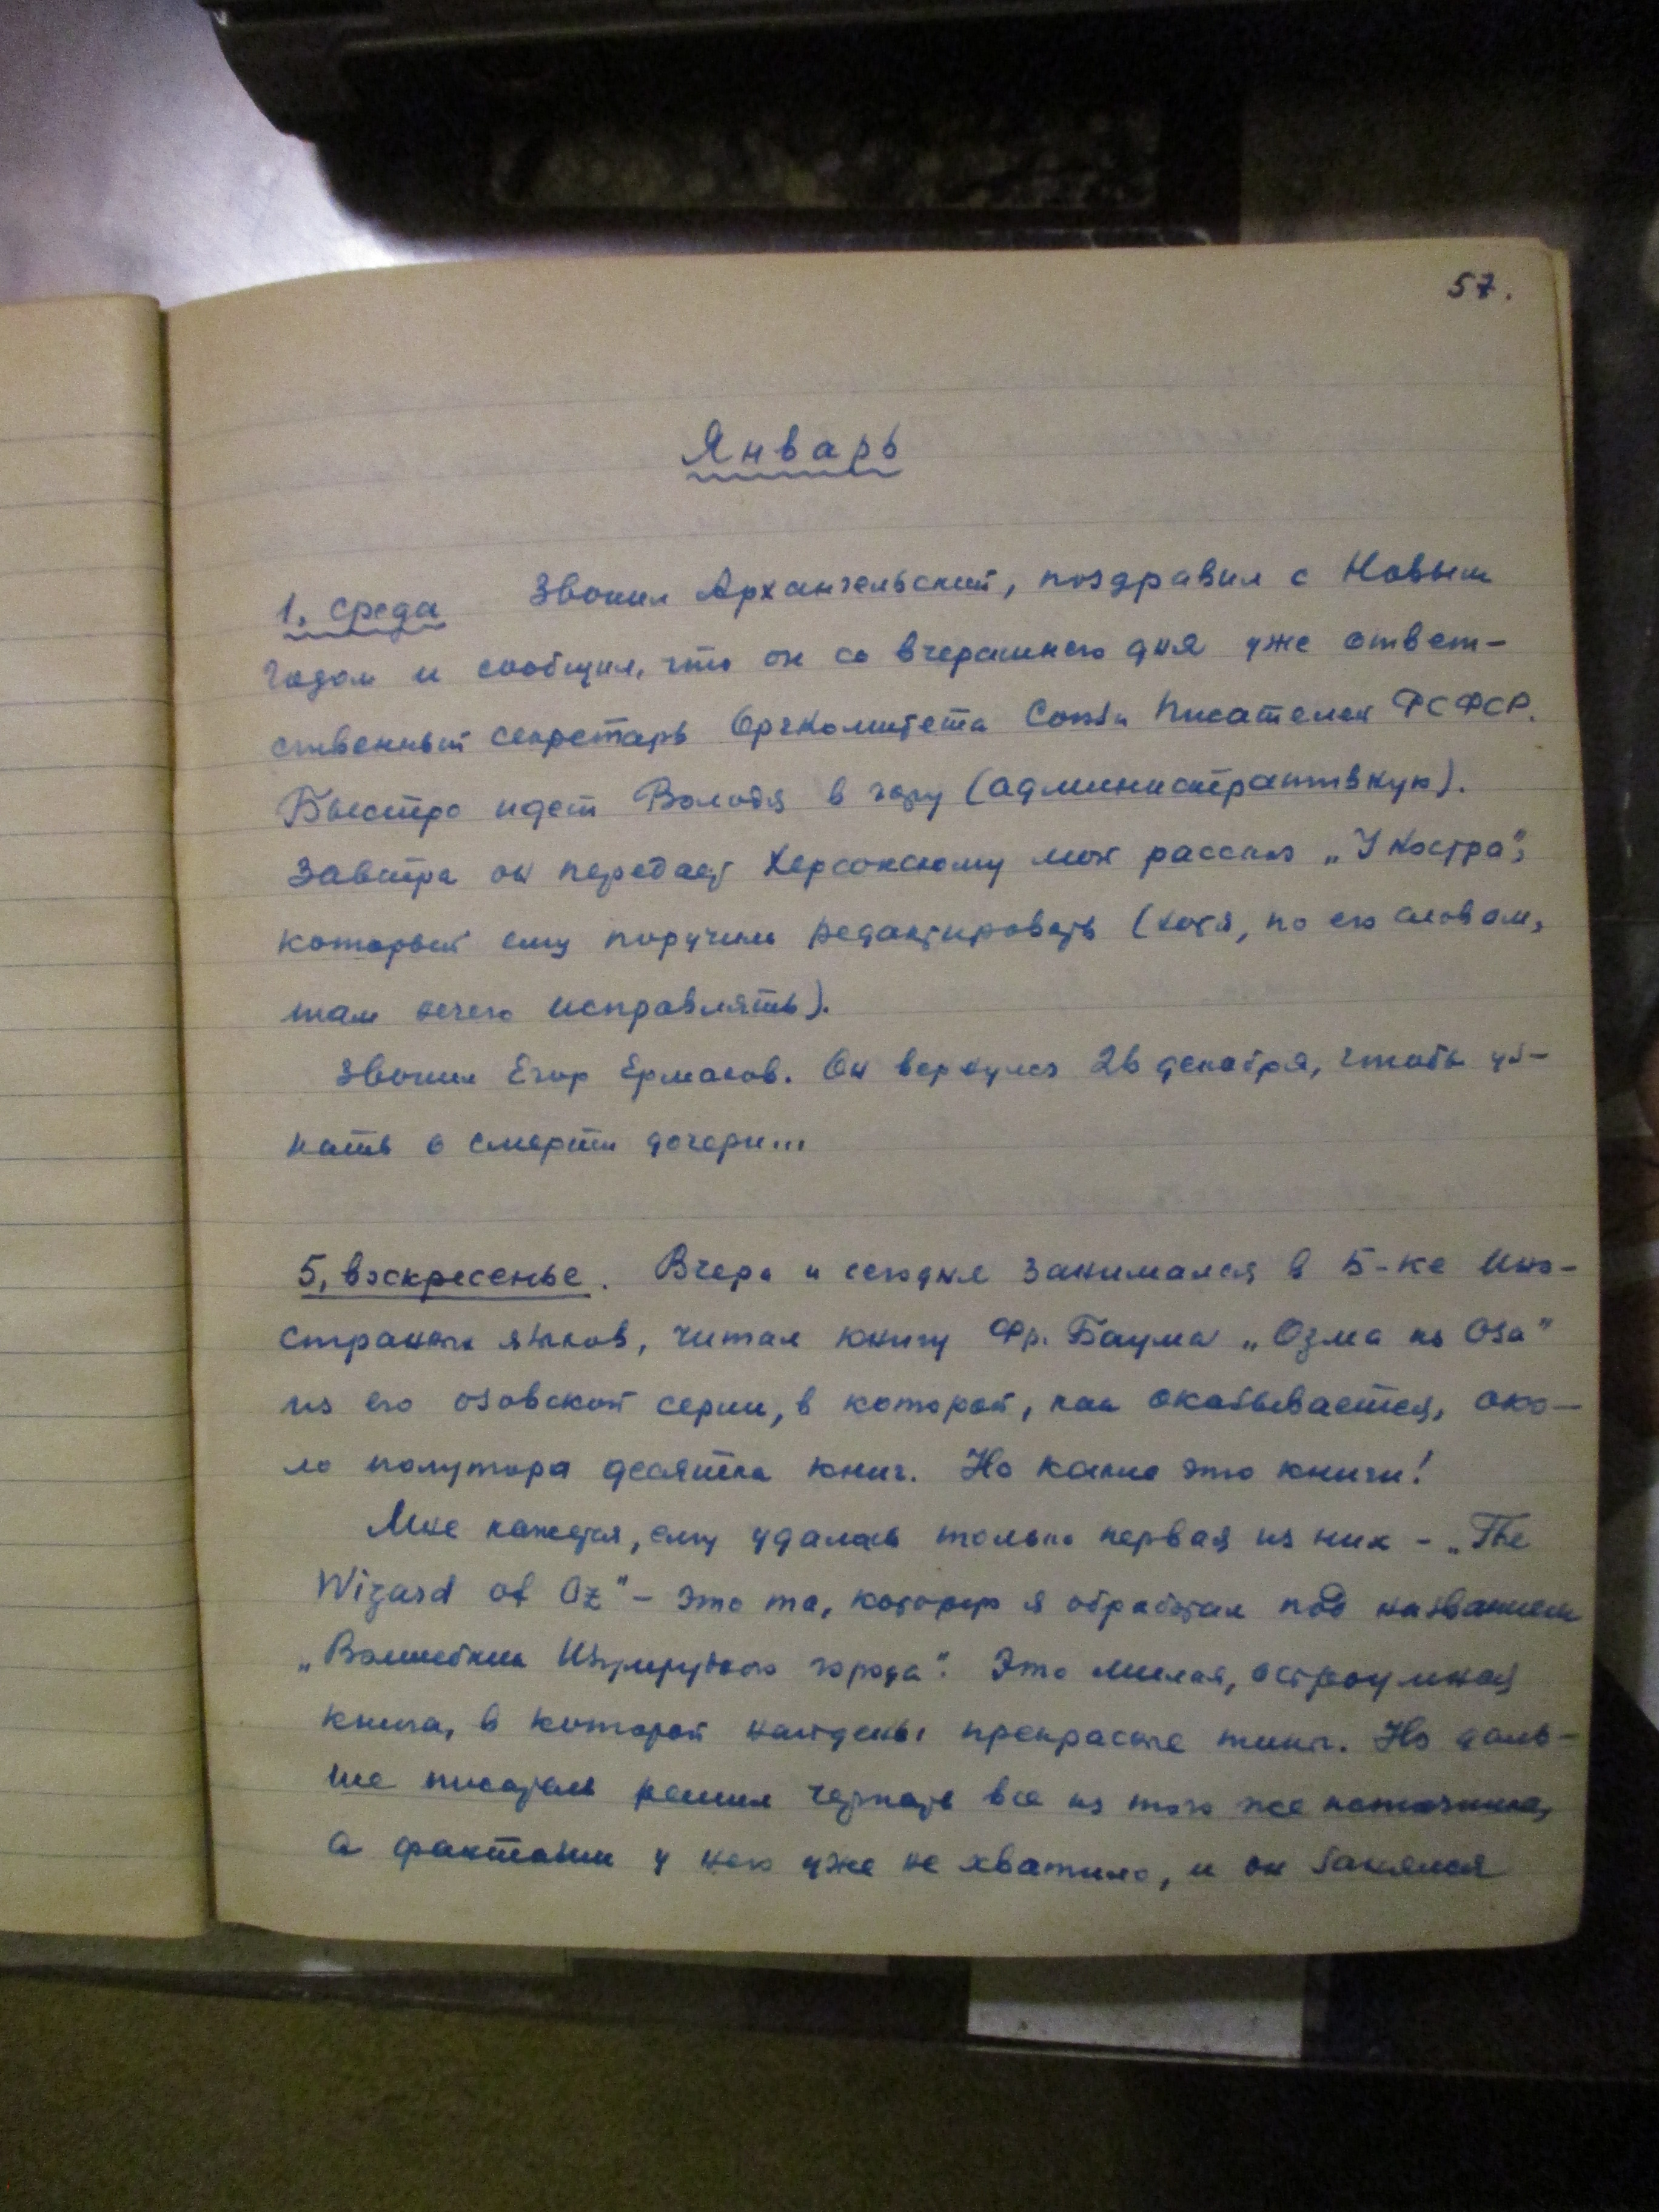 57.
Январь
1. среда Звонил Архангельский, поздравил с Новым
годом и сообщил, что он со вчерашнего дня уже ответ-
ственный секретарь Оргкомитета Союза Писателей РСФСР.
Быстро идет Володя в гору (административную).
Завтра он передает Херсонскому мой рассказ „У костра",
который ему поручили редактировать (хотя, по его словам,
там нечего исправлять).
Звонил Егор Ермаков. Он вернулся 26 декабря, чтобы уз-
нать о смерти дочери...
5, воскресенье. Вчера и сегодня занимался в Б-ке Ино-
странных языков, читал книгу Фр. Баума „Озма из Оза"
из его озовской серии, в которой, как оказывается, око-
ло полутора десятка книг. Но какие это книги!
Мне кажется, ему удалась только первая из них – „The
Wizard of Oz" – это та, которую я обработал под названием
„Волшебник Изумрудного города". Это милая, остроумная
книга, в которой найдены прекрасные типы. Но даль-
ше писатель решил черпать все из того же источника,
а фантазии у него уже не хватило, и он занялся